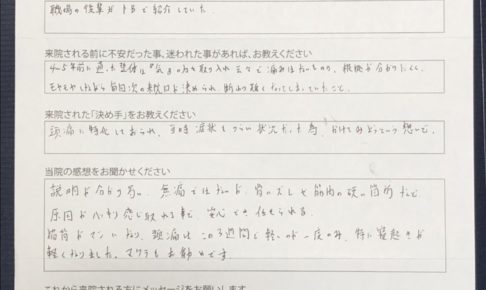 職場の後輩がFBで紹介していた。
来院される前に不安だった事、迷われた事があれば、お教えください
4〜5年前に通った整体は「気」の力を取り入れ云々で痛みはないものの、根拠が分かりにくく、
モヤモヤしながら毎回次の来院日が決められ、断わり辛くなってしまっていたこと。
来院された「決め手」をお教えください
頭痛に特化しておられ、当時症状もつらい状況だった為、かけてみようという想いで。
当院の感想をお聞かせください
説明が分かり易い。無痛ではないが、骨のズレや筋肉の硬い箇所など
原因がハッキリ感じ取れる事で、安心してお任せられる。
猫背がマシになり、頭痛はこの3週間で軽いのが一度のみ、特に寝起きが
軽くなりました。マクラもお勧めです。
これから来院される方にメッセージをお願いします